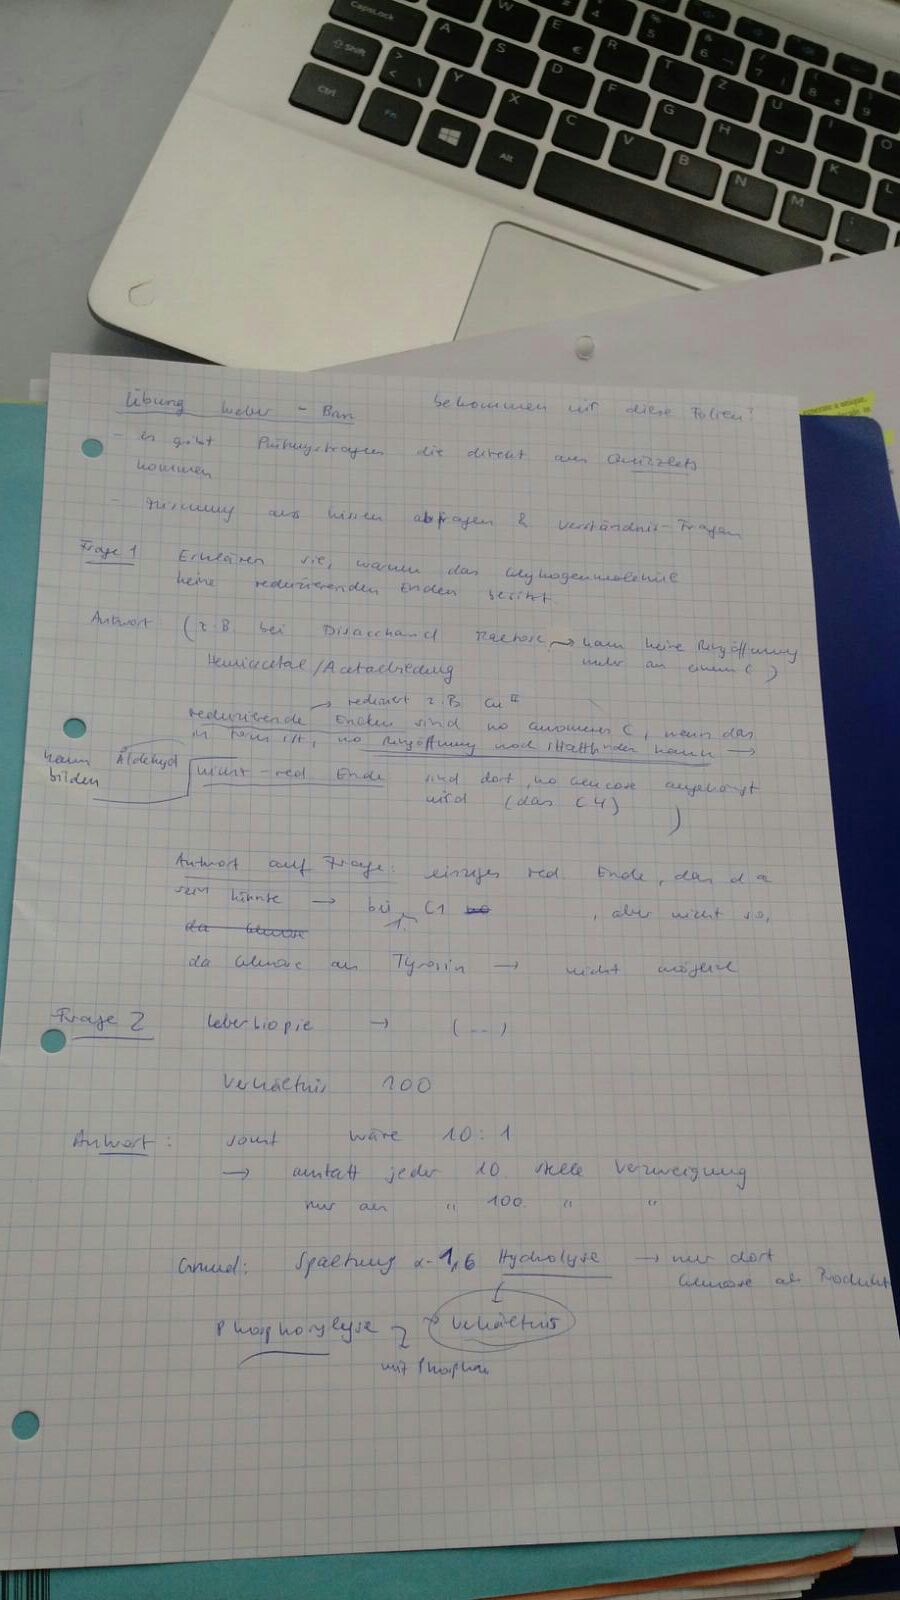 CapsLock
A
S
W
E
€
D
R
F
T
G
Z
H
U
J
K
L
O
Shift
>
<
Y
X
C
V
B
N
M
Ctrl
Fn
Alt
Übung Weber-Ban bekommen wir diese Folien?
- es gibt Prüfungsfragen die direkt aus Quizzlets
kommen
- Mischung aus Wissen abfragen & Verständnis-Fragen
Frage 1 Erklären sie, warum das Glykogenmolekül
keine reduzierenden Enden besitzt.
Antwort (z.B. bei Disaccharid → kann keine Ringöffnung
mehr an einem C)
Hemiacetal/Acetalbildung
→ reduziert z.B. Cu II
reduzierende Enden sind wo anomeres C, wenn das
in Form ist, wo Ringöffnung noch stattfinden kann →
kann Aldehyd
bilden
nicht-red Ende sind dort, wo Glucose angehängt
wird (das C4) )
Antwort auf Frage: einziges red. Ende, das da
sein könnte → bei 1. C1 wo , aber nicht so,
da Glucose
da Glucose an Tyrosin → nicht möglich
Frage 2 Leberbiopie → (...)
Verhältnis 100
Antwort: sonst wäre 10:1
→ anstatt jeder 10. Stelle Verzweigung
nur an " 100. " "
Grund: Spaltung α-1,6 Hydrolyse → nur dort
Glucose als Produkt
Phosphorylyse → Verhältnis
mit Phosphat